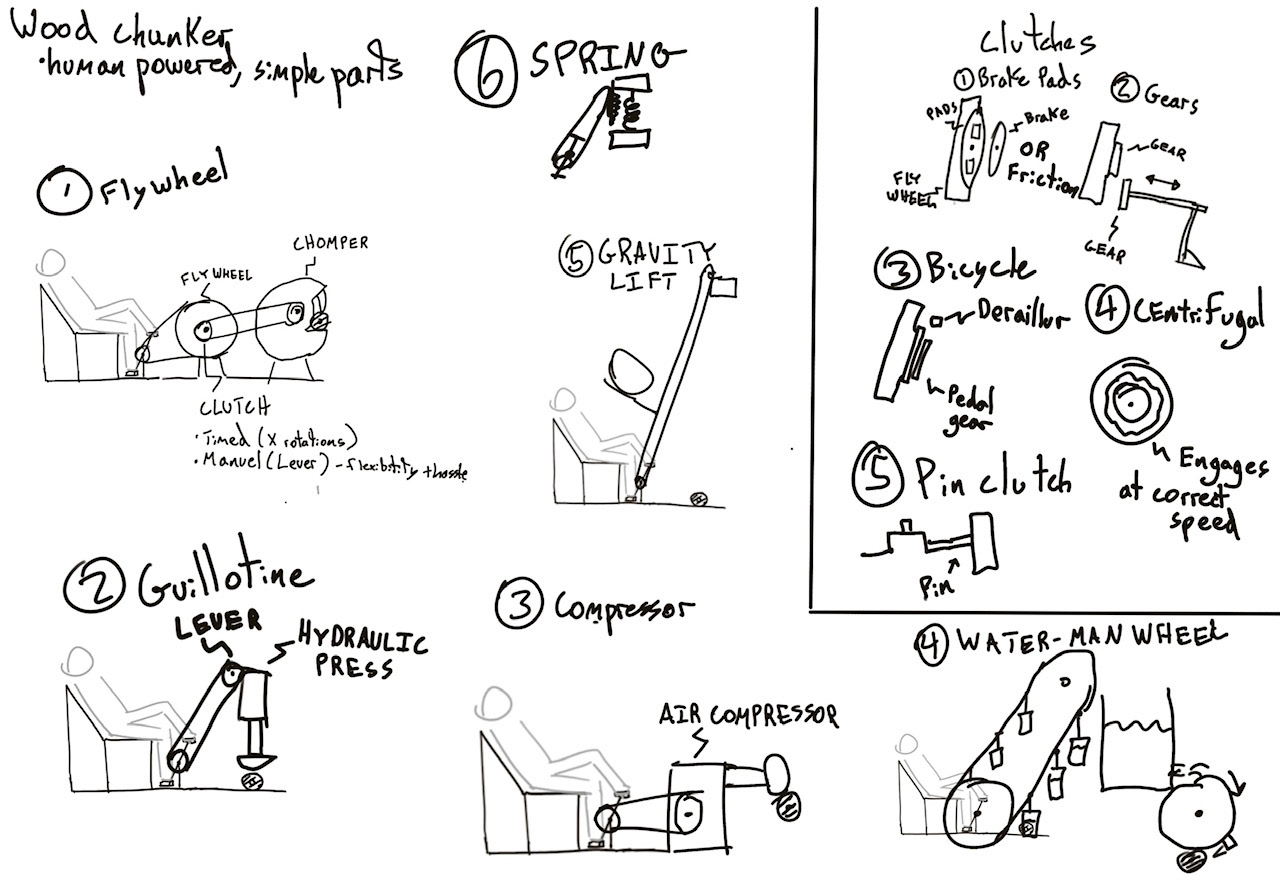 Wood chunker
• human powered, simple parts
① Flywheel
FLYWHEEL
CHOMPER
CLUTCH
• Timed (X rotations)
• Manuel (Lever) - flexibility + hassle
② Guillotine
LEVER
HYDRAULIC
PRESS
⑥ SPRING
⑤ GRAVITY
LIFT
③ Compressor
AIR COMPRESSOR
Clutches
① Brake Pads
PADS
Brake
OR
Friction
FLY
WHEEL
② Gears
GEAR
GEAR
③ Bicycle
Deraillur
Pedal
gear
④ CEntrifugal
Engages
at correct
speed
⑤ Pin clutch
Pin
④ WATER-MAN WHEEL